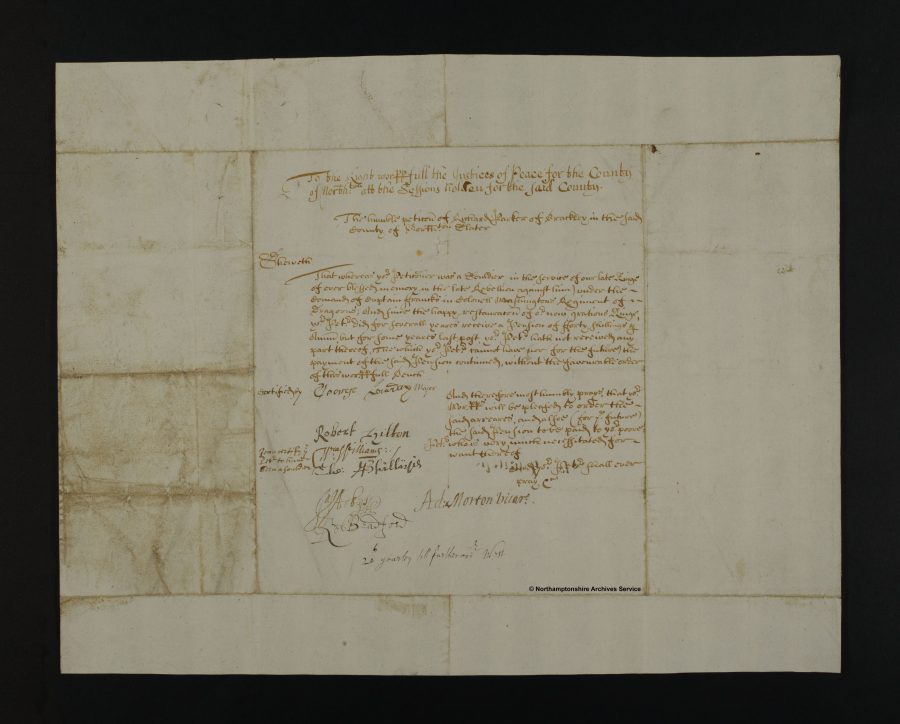 To the Right worsh:full the Justices of Peace for the County
of Northton att the Sessions holden for the said County.
The humble peticon of Richard Parker of Brackley in the said
County of Northton Slater
Sheweth
That whereas yor Peticoner was a Souldier in the service of our late Kinge
of ever blessed memory in the late Rebellion against him under the
Comand of Captain ffrancks in Colonell Washingtons Regiment of
Dragoons; And since the happy restauracon of or now gratious Kinge,
yor Petr did for severall yeares receive a Pension of fforty shillings p
Annu but for some yeares last past yor Petr hath not received any
part thereof, The which yor Petr cannot have nor for the future the
payment of the said Pension continued, without the favourable order
of this worshfull Bench
Certified by George Major
And therefore most humbly prayes that yor
Worshs will be pleased to order the
said arreares, and alsoe (for ye future)
the said Pension to be paid to yor poore
Petr who is very much necessitated for
want thereof
And yor Petr shall ever
pray &c
Robert Hilton
Wm Williams
Tho: Phillips
Ad: Morton vicar
Bradford
20s yearly till further ordr
© Northamptonshire Archives Service